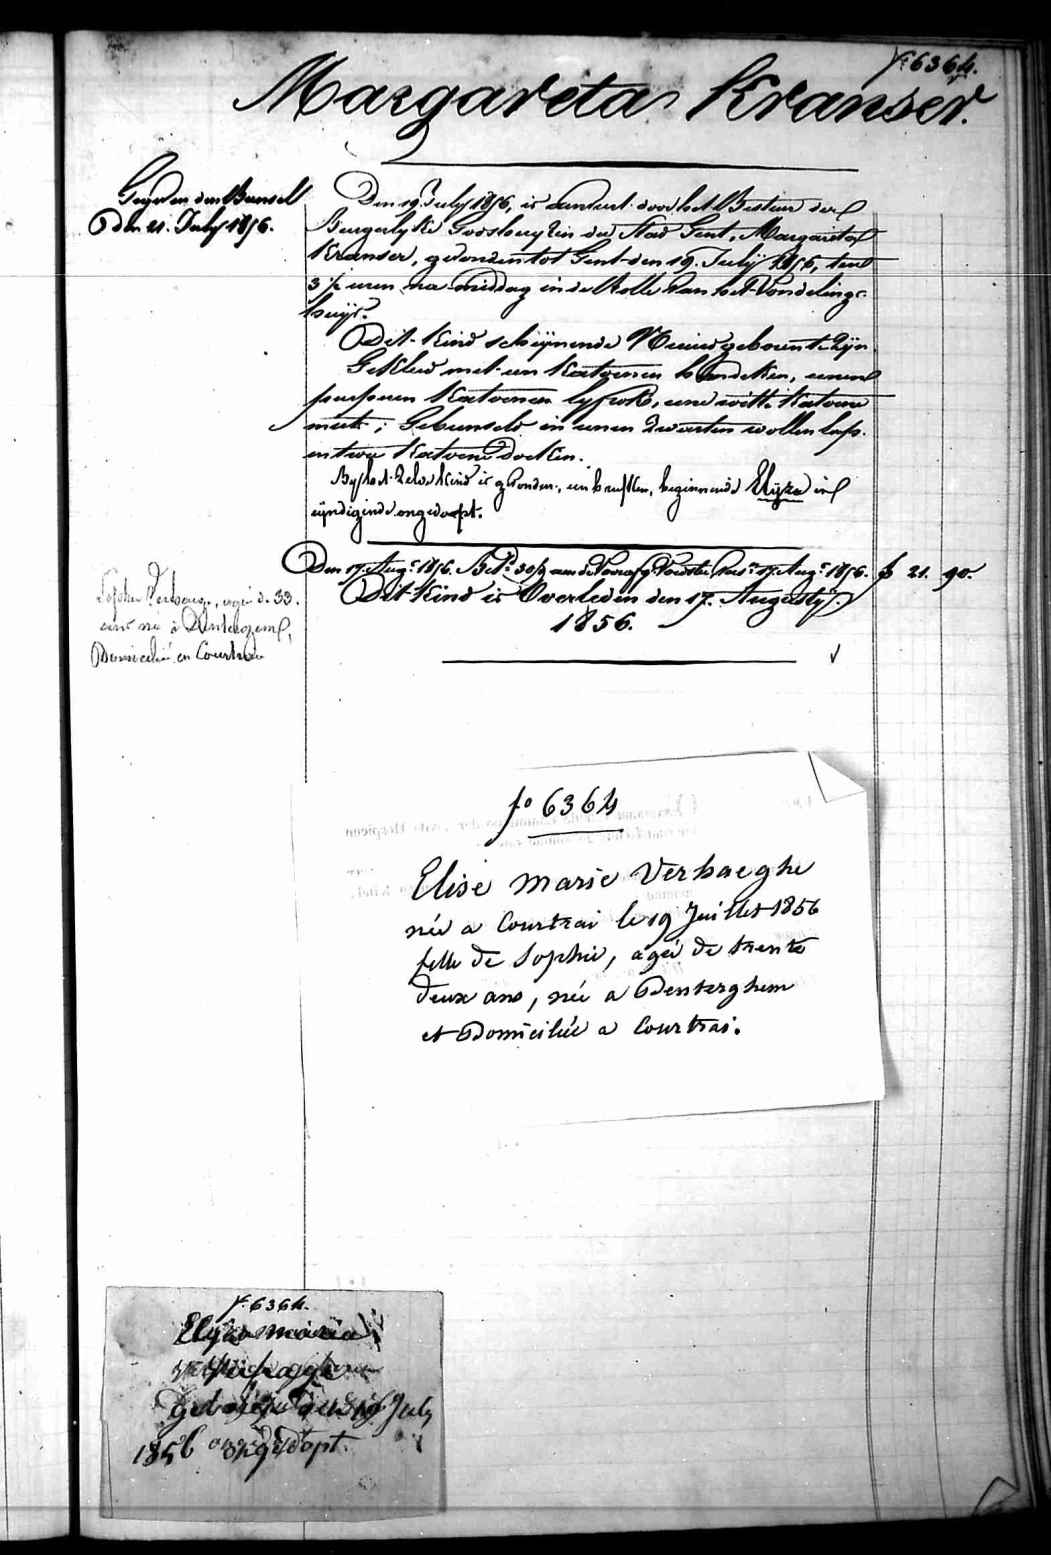 f.° 6364.
Margareta Kranser.
Gezonden den Bunsel
den 21. July 1856.
Den 19 July 1856, is aenveert door het Bestuer der
Burgerlyke Godshuyzen der Stad Gent, Margareta
Kranser, gevonden tot Gent den 19. July 1856, ten
3 ½ uren na middag in de Rolle van het Vondelings-
huys.
Dit Kind schynende Nieuwgeboren te Zyn
Gekleed met een Katoenen hemdeken, eenen
purperen Katoenen lyfrok, eene witte Katoene
muts; Gebunseld in eenen Zwarten wollen lap.
en twee Katoene doeken.
By het Zelve Kind is gevonden, een briefken, beginnende Elyza en
eyndigende ongedoopt.
Den 17. Aug. 1856. Bet. aen de Voorsz. Voedster, 17. Aug. 1856. f 21. 90.
Dit Kind is Overleden den 17. Augusty
1856.
Sophie Verhaeghe, agée de 33.
ans née à Denterghem,
Domiciliée en Courtrai
f° 6364
Elise Marie Verhaeghe
née a Courtrai le 19 Juillet 1856
fille de Sophie, agée de trente
deux ans, née a Denterghem
et Domiciliée a Courtrai.
f. 6364.
Elyza Maria
Geboren den 19 July
1856 ongedopt.